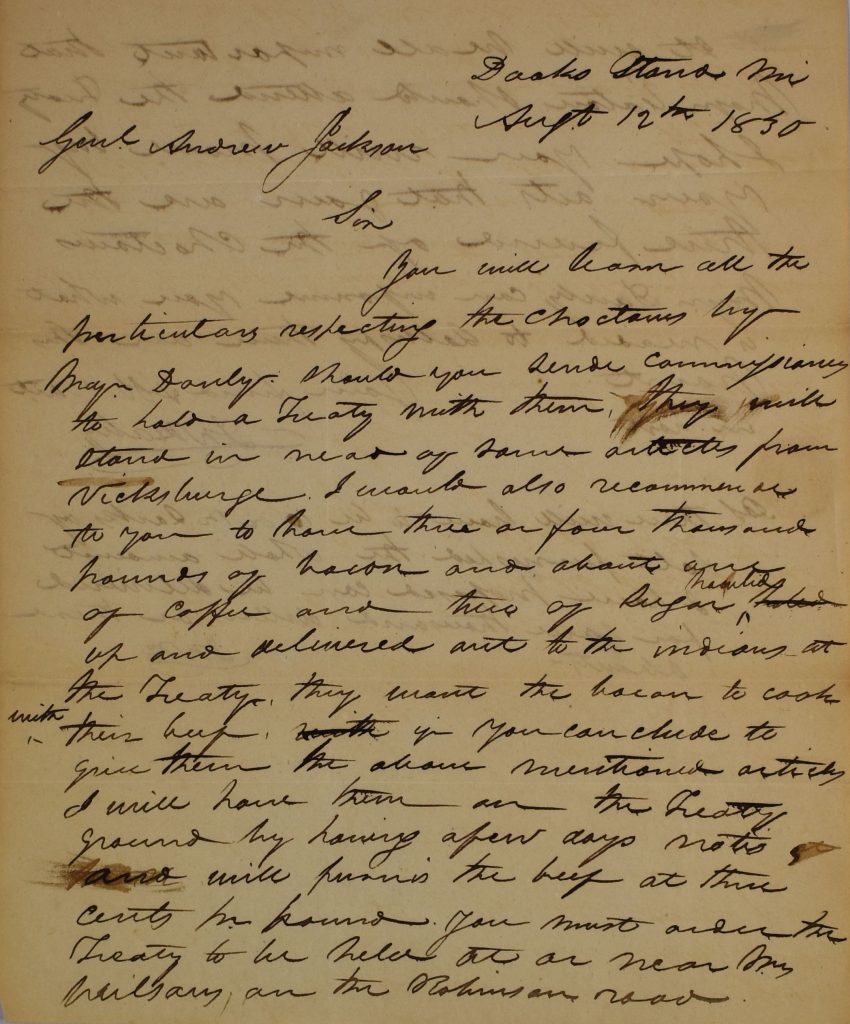 Doaks Stand Mi
Augt. 12th 1830
Genl. Andrew Jackson
Sir
You will learn all the
perticulars respecting the Choctaws by
Majr. Donly. Should you sende commissioners
to hold a Treaty with them, they will
stand in nead of some articles from
Vicksburge. I would also recommend
to you to have three or four thousand
pounds of bacon and about one
of coffee and two of Sugar hauled
up and delivered out to the indians at
the Treaty. they want the bacon to cook
with their beef. if you conclude to
give them the above mentioned articles
I will have them on the Treaty
ground by having a few days notis
and will furnis the beef at three
cents pr. pound. You must order the
Treaty to be held at or near Mrs
Wilsons, on the Robinson road.